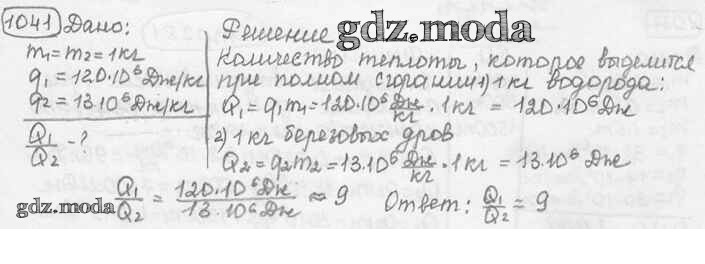 1041 Дано:
m₁=m₂=1кг
q₁=120·10⁶Дж/кг
q₂=13·10⁶Дж/кг
Q₁/Q₂ - ?
Решение
gdz.moda
Количество теплоты, которое выделится
при полном сгорании 1) 1кг водорода:
Q₁=q₁m₁=120·10⁶ Дж/кг ·1кг = 120·10⁶Дж
2) 1кг береговых дров
Q₂=q₂m₂=13·10⁶ Дж/кг ·1кг =13·10⁶Дж
Q₁/Q₂ = 120·10⁶Дж/13·10⁶Дж ≈ 9
Ответ: Q₁/Q₂ ≈ 9
gdz.moda